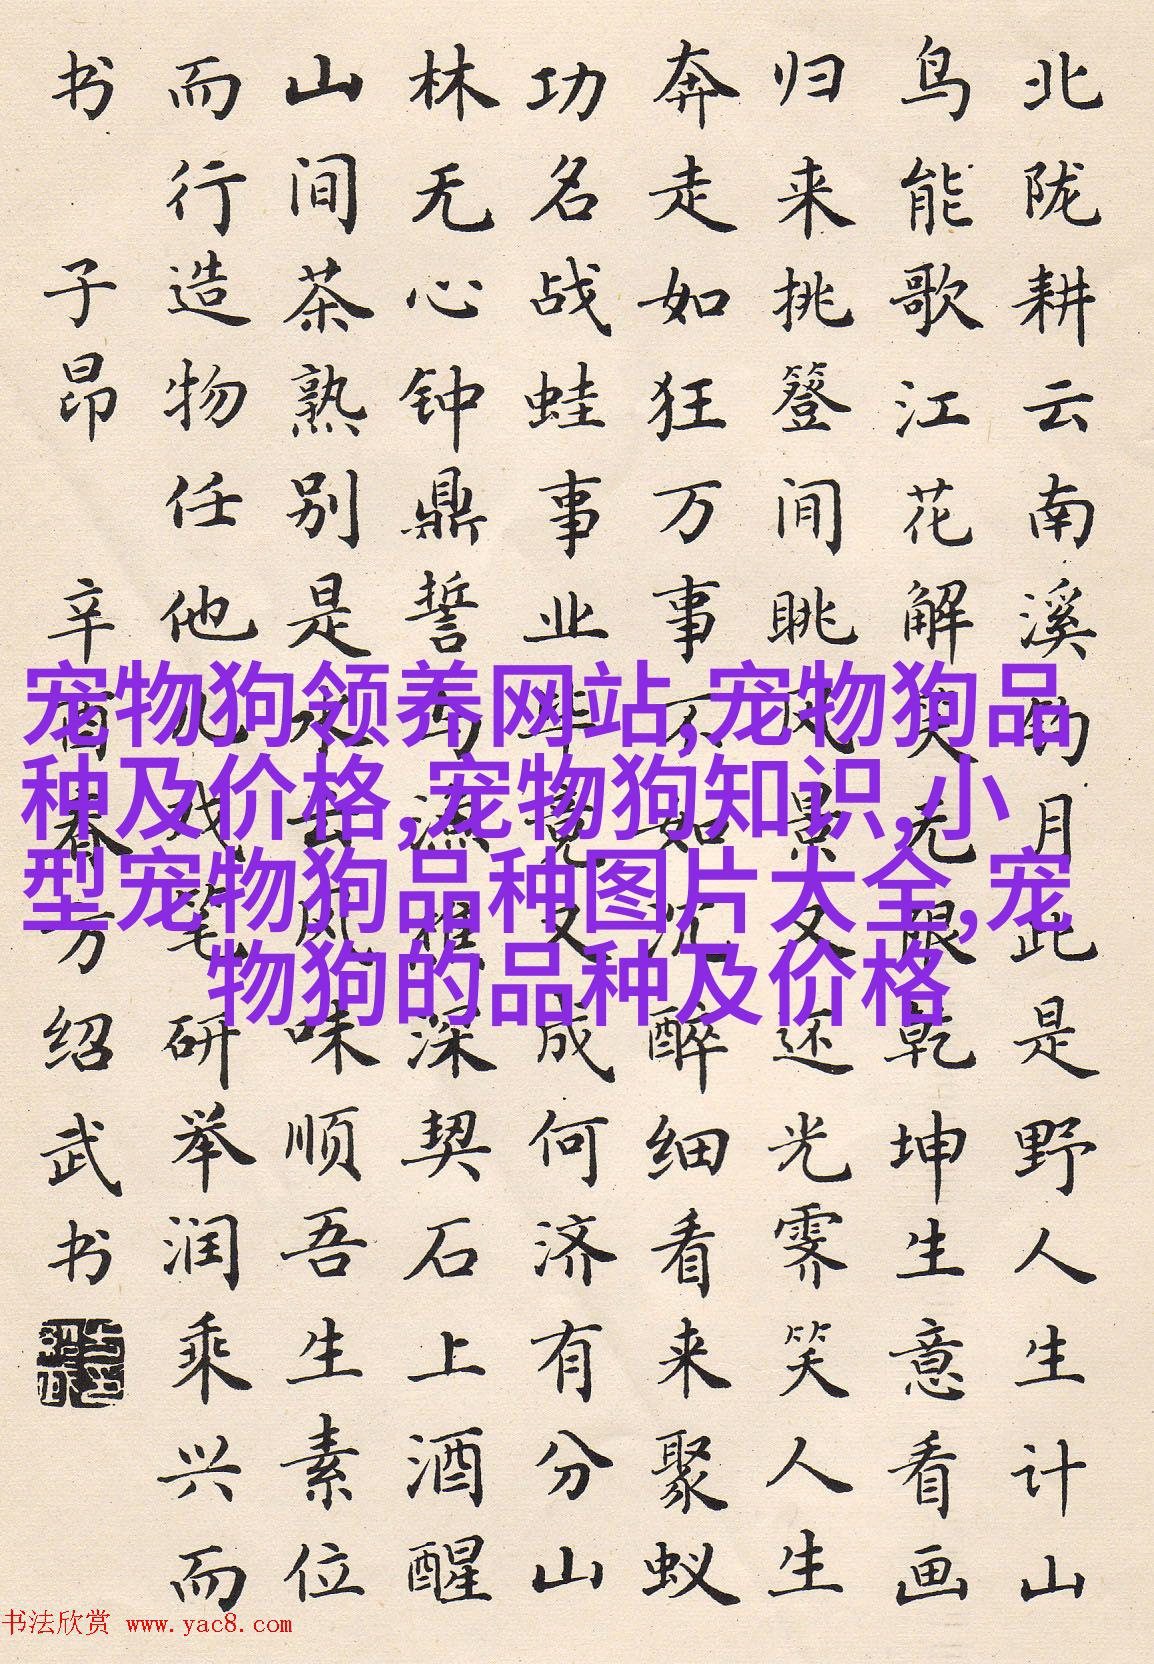 北陇耕云南溪钓月此是野人生计山
鸟能歌江花解笑无限乾坤生意看画
归来挑簦间眺风景又还光霁笑人生
奔走如狂万事不如沉醉细看来聚蚁
功名战蛙事业毕竟又成何济有分山
林无心钟鼎誓与渔樵深契石上酒醒
山间茶熟别是水云风味顺吾生素位
而行造物任他儿戏笔研举润乘兴而
书 子昂 辛酉春方绍武书
宠物狗领养网站,宠物狗品
种及价格,宠物狗知识,小
型宠物狗品种图片大全,宠
物狗的品种及价格
书法欣赏 www.yac8.com